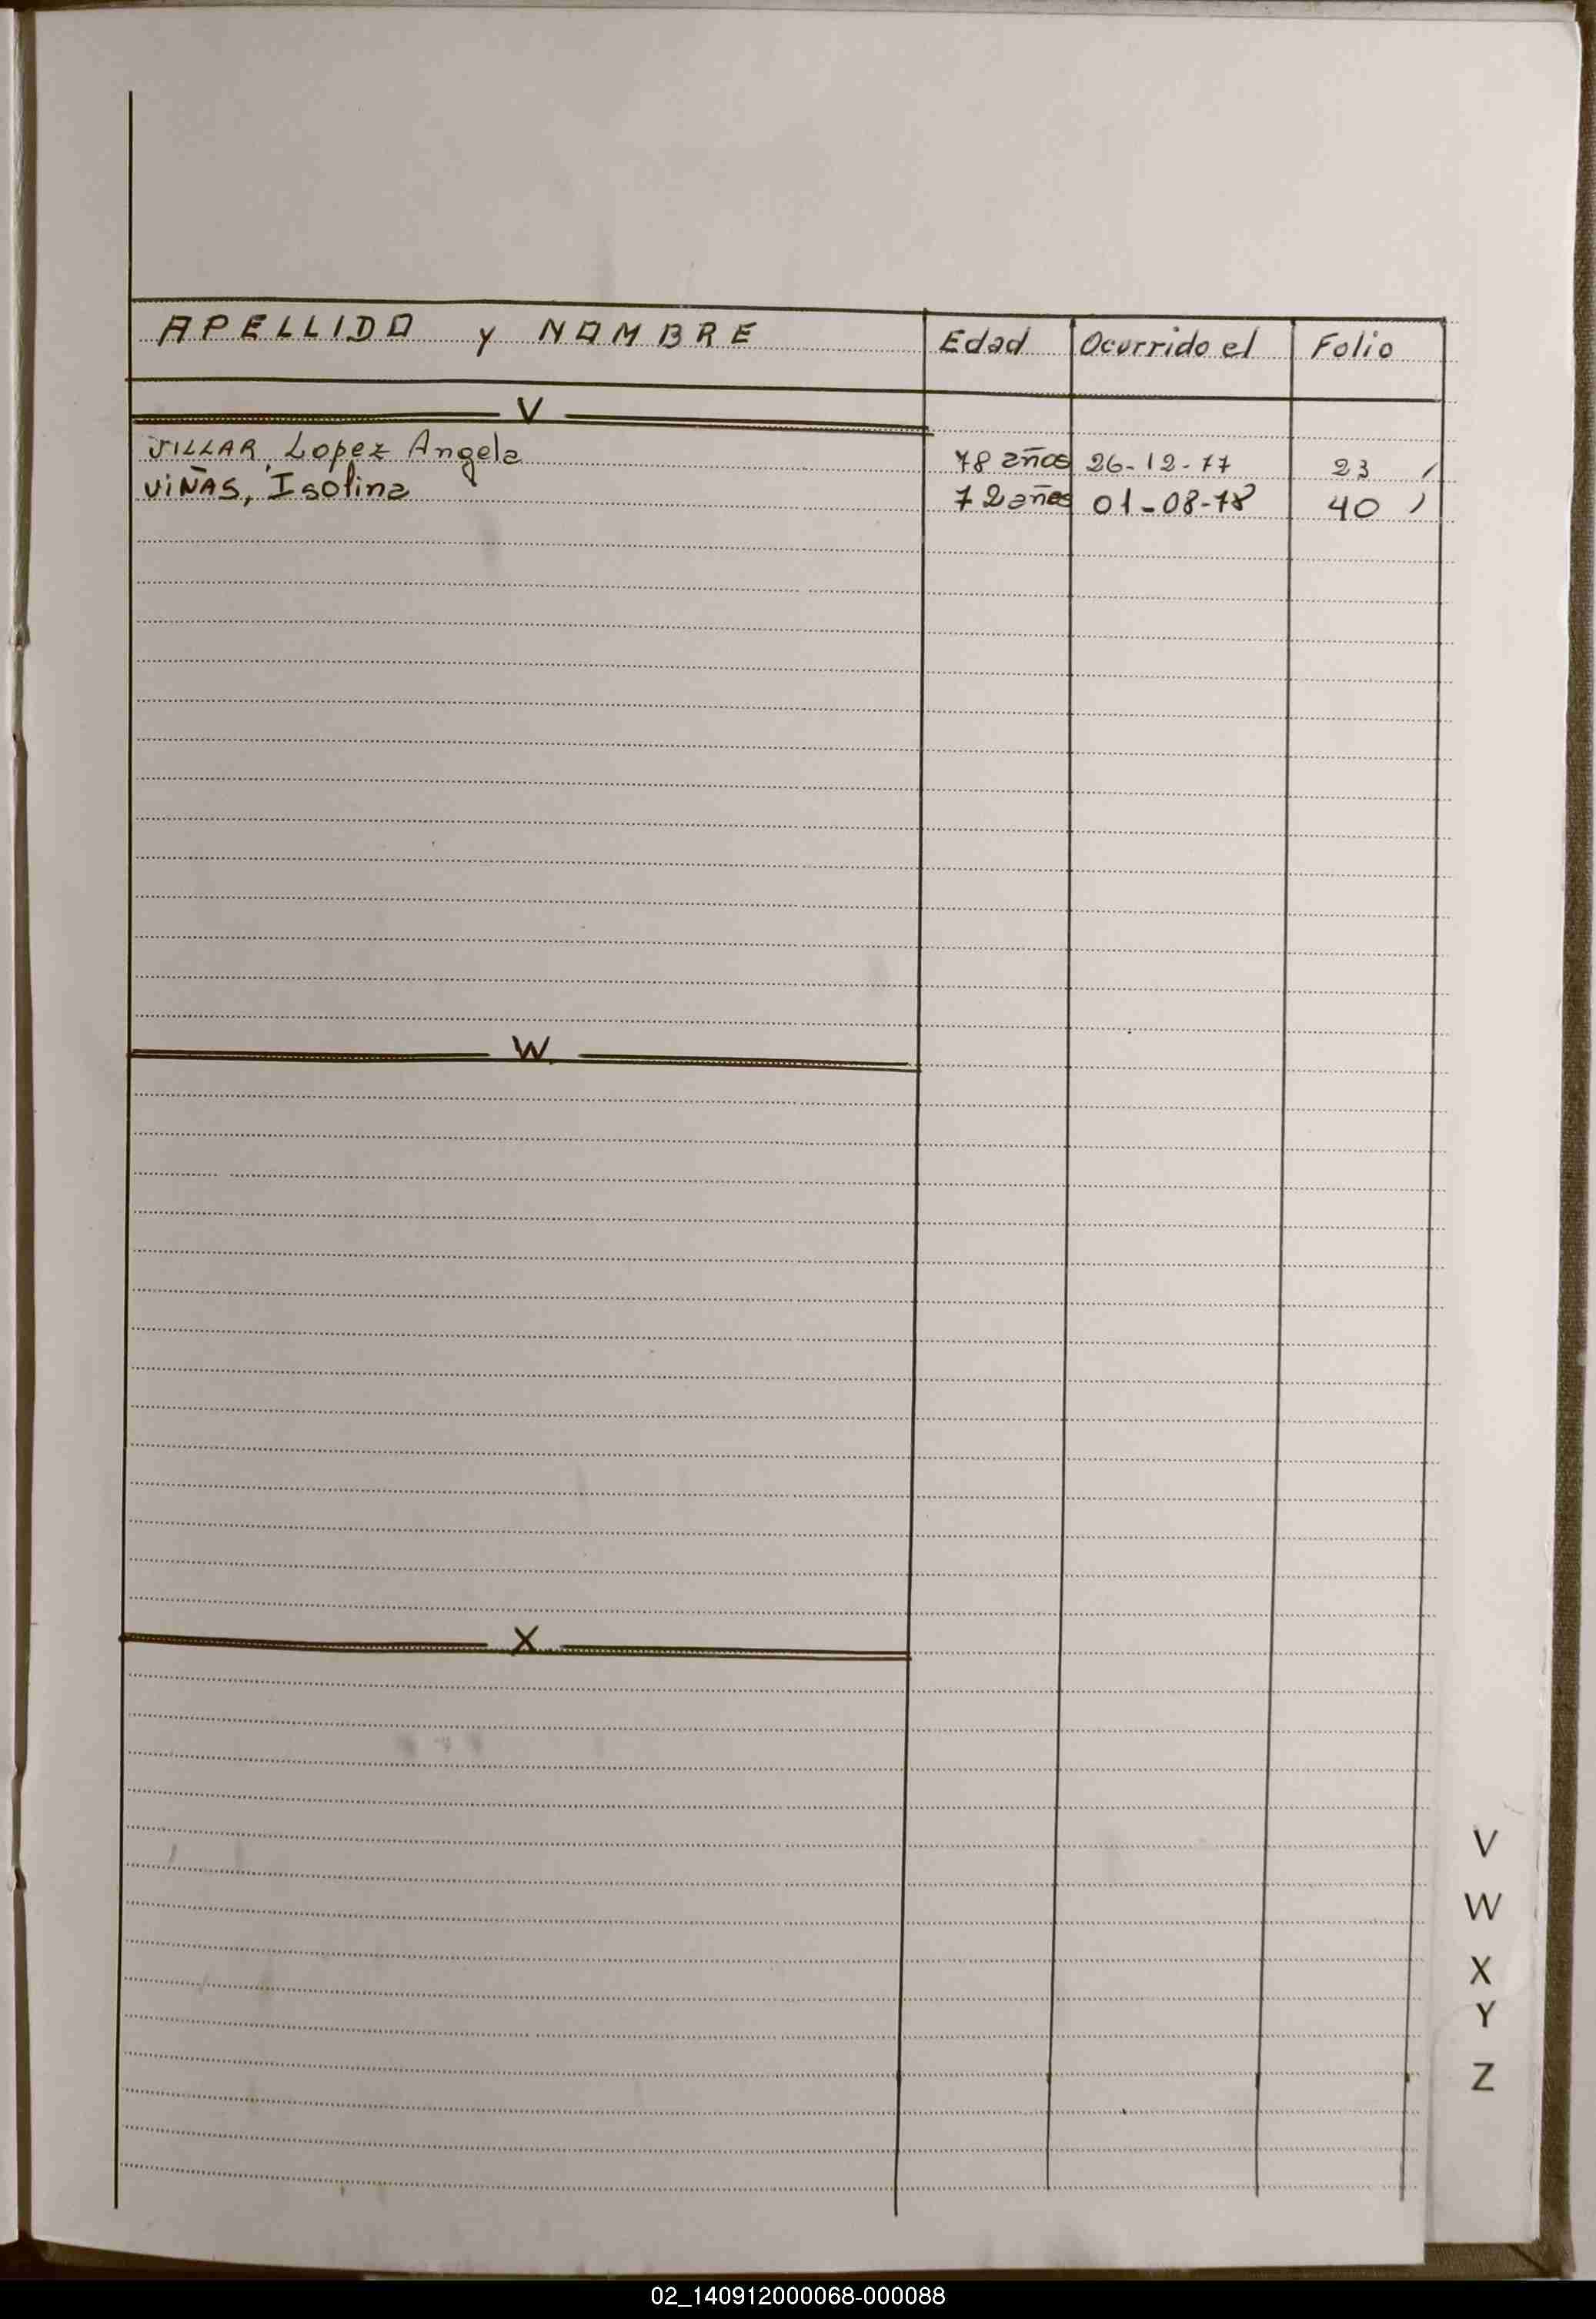 APELLIDO y NOMBRE Edad Ocurrido el Folio
V
VILLAR, Lopez Angela 78 años 26-12-77 23
VIÑAS, Isolina 72 años 01-08-78 40
W
X
V
W
X
Y
Z
02_140912000068-000088